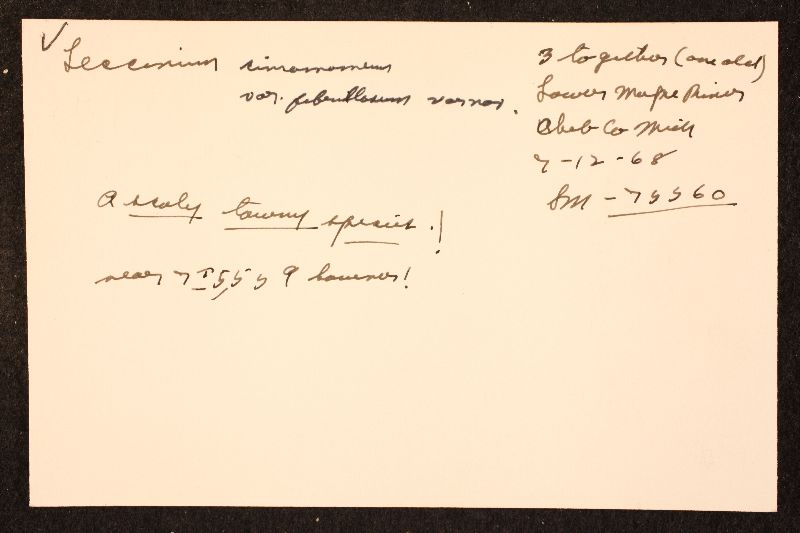 ✓ Leccinum cinnamomeum
var. fibrillosum var nov.
3 together (one old)
Lower Maple River
Cheb Co Mich
7-12-68
Sm - 75560
A scaly tawny species!
near